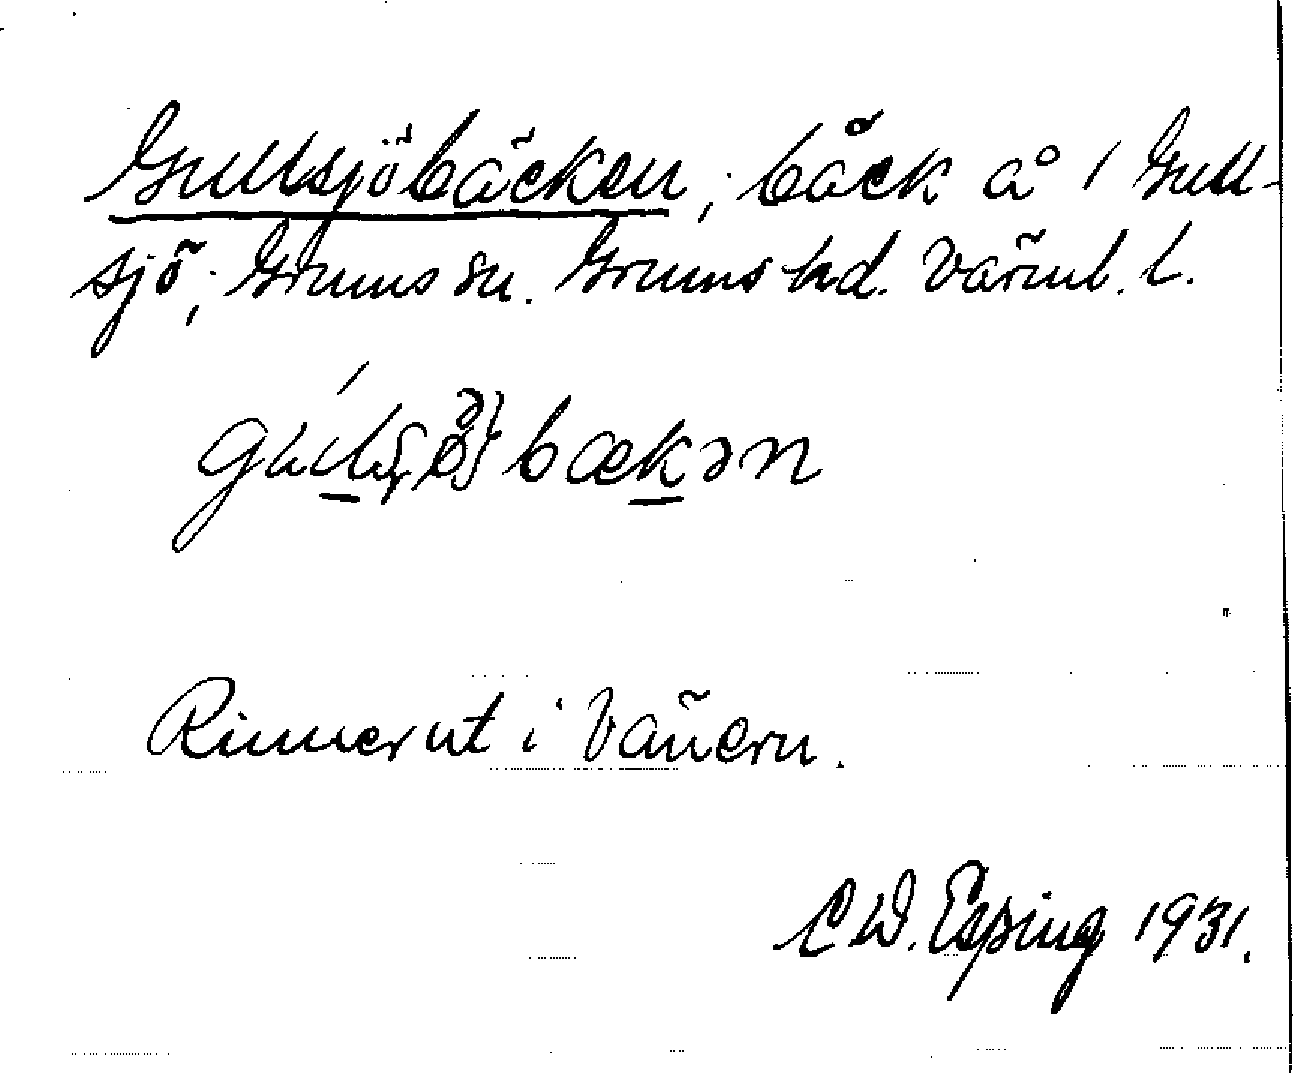 Gullsjöbäcken; bäck å 1 Gull-
sjö; Grums sn. Grums hd. Värml. l.
bækən
Rinner ut i Vänern.
C W. Esping 1931.